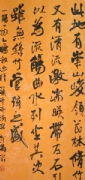 此地有崇山峻領茂林修竹
又有清流激湍映帶左右引
以為流觴曲水列坐其次
雖無絲竹管弦之盛